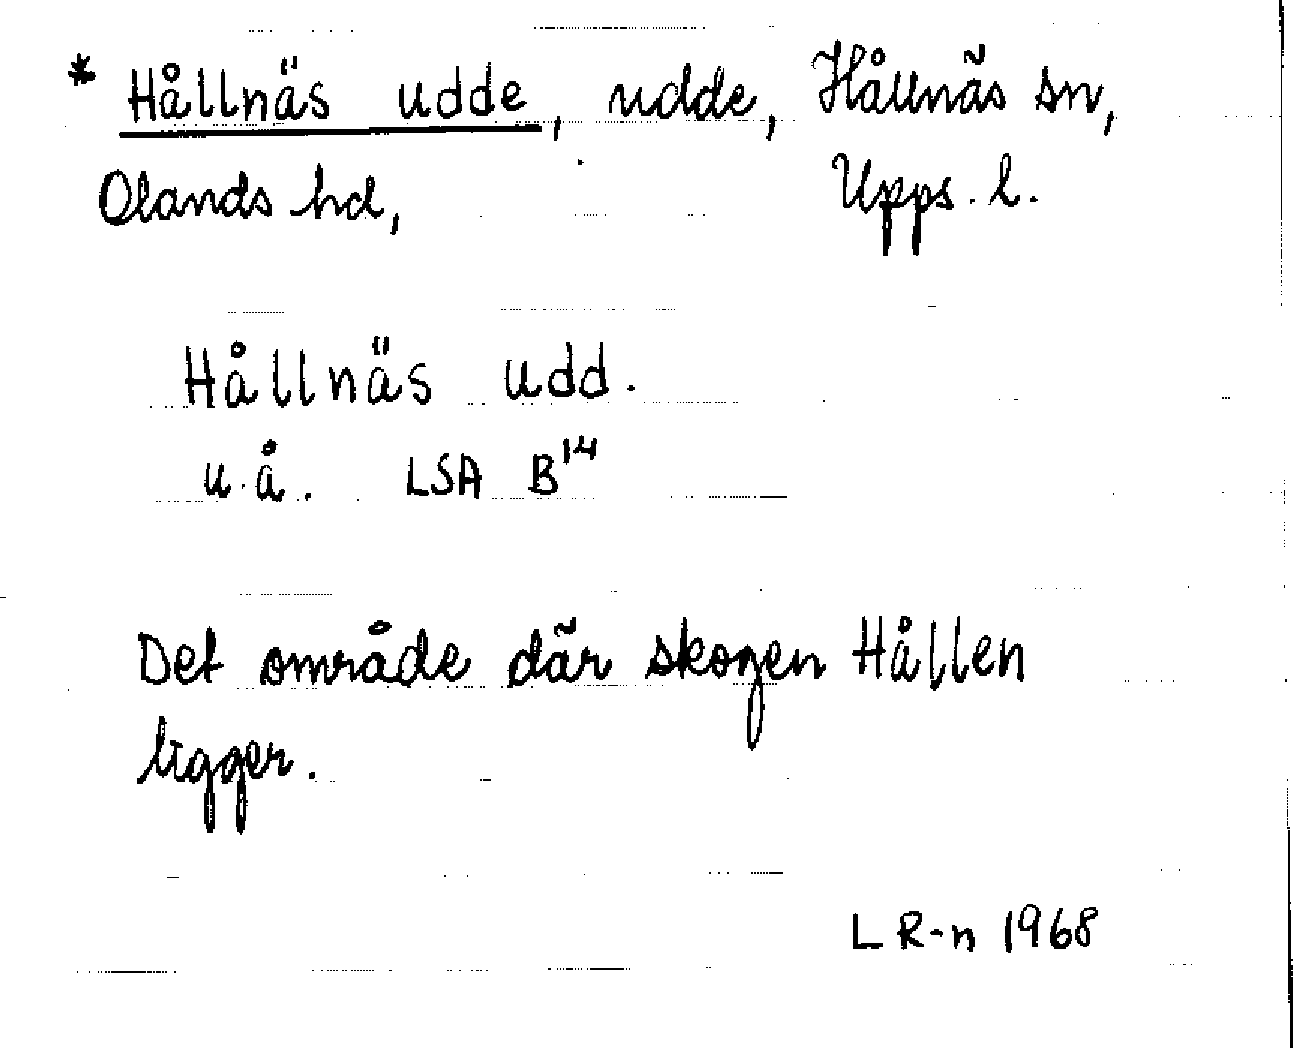 * Hållnäs udde, udde, Hållnäs sn,
Olands hd, Upps. l.
Hållnäs udd.
u.å. LSA B14
Det område där skogen Hållen
ligger.
L R-n 1968